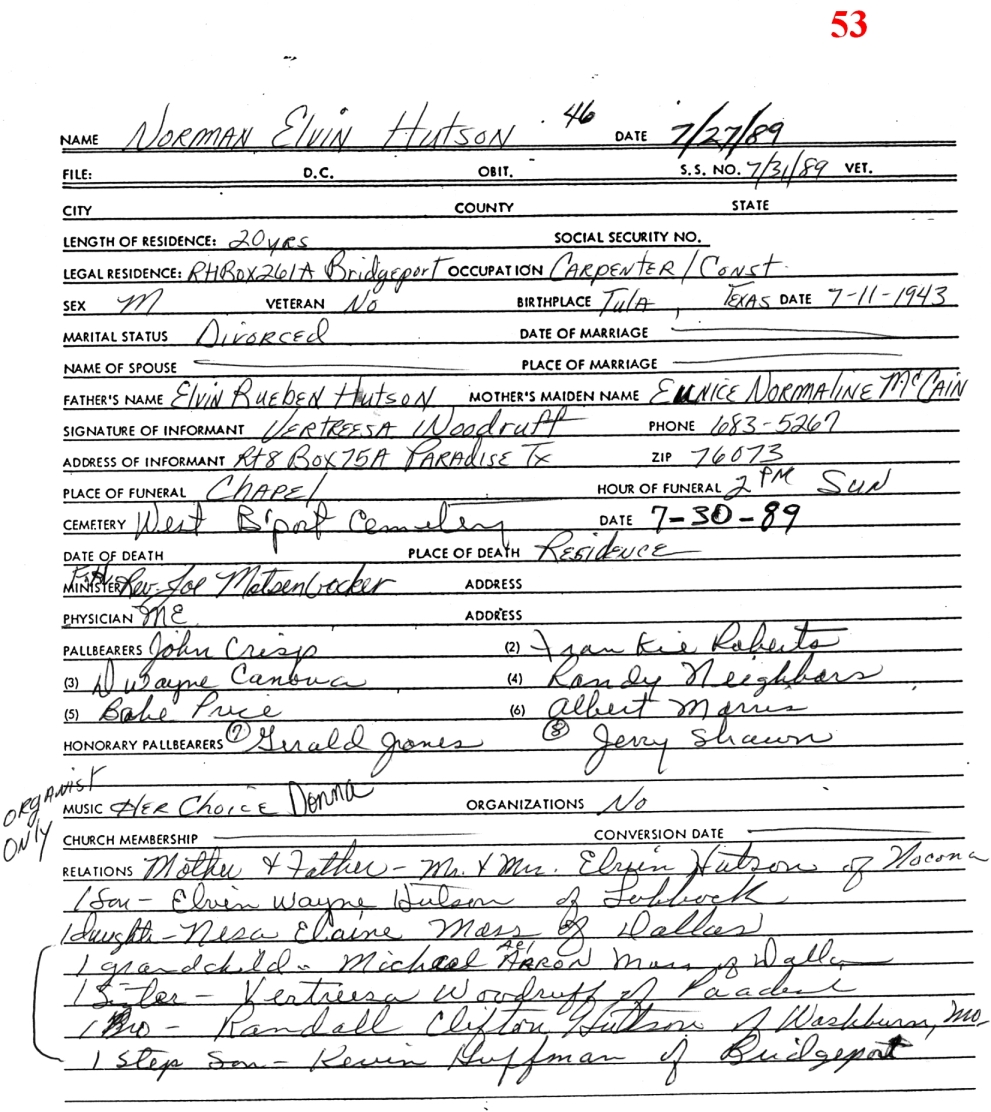 53
NAME Norman Elvin Hutson 46 DATE 7/27/89
FILE: D.C. OBIT. S.S. NO. 7/31/89 VET.
CITY COUNTY STATE
LENGTH OF RESIDENCE: 20 yrs SOCIAL SECURITY NO.
LEGAL RESIDENCE: Rt4Box261A Bridgeport OCCUPATION Carpenter/Const.
SEX M VETERAN No BIRTHPLACE Tula, Texas DATE 7-11-1943
MARITAL STATUS Divorced DATE OF MARRIAGE
NAME OF SPOUSE PLACE OF MARRIAGE
FATHER'S NAME Elvin Rueben Hutson MOTHER'S MAIDEN NAME Eunice Normaline McCain
SIGNATURE OF INFORMANT Vertreesa Woodruff PHONE 683-5267
ADDRESS OF INFORMANT Rt8 Box75A Paradise Tx ZIP 76073
PLACE OF FUNERAL Chapel HOUR OF FUNERAL 2 PM Sun
CEMETERY West B'port Cemetery DATE 7-30-89
DATE OF DEATH PLACE OF DEATH Residence
MINISTER Rev. Joe Matsenbocker ADDRESS
PHYSICIAN ME ADDRESS
PALLBEARERS John Crisp (2) Frankie Roberts
(3) Dwayne Canova (4) Randy Neighbors
(5) Babe Price (6) Albert Morris
HONORARY PALLBEARERS (7) Gerald Jones (8) Jerry Shawn
Organist Only
MUSIC Her Choice Donna ORGANIZATIONS No
CHURCH MEMBERSHIP CONVERSION DATE
RELATIONS Mother & Father - Mr. & Mrs. Elvin Hutson of Nocona
1 Son - Elvin Wayne Hutson of Lubbock
1 daughter - Nesa Elaine Moss of Dallas
1 grandchild - Michael Arron Moss of Dallas
1 Sister - Vertreesa Woodruff of
1 Bro - Randall Clifton Hutson of Washburn, Mo.
1 Step Son - Kevin Huffman of Bridgeport